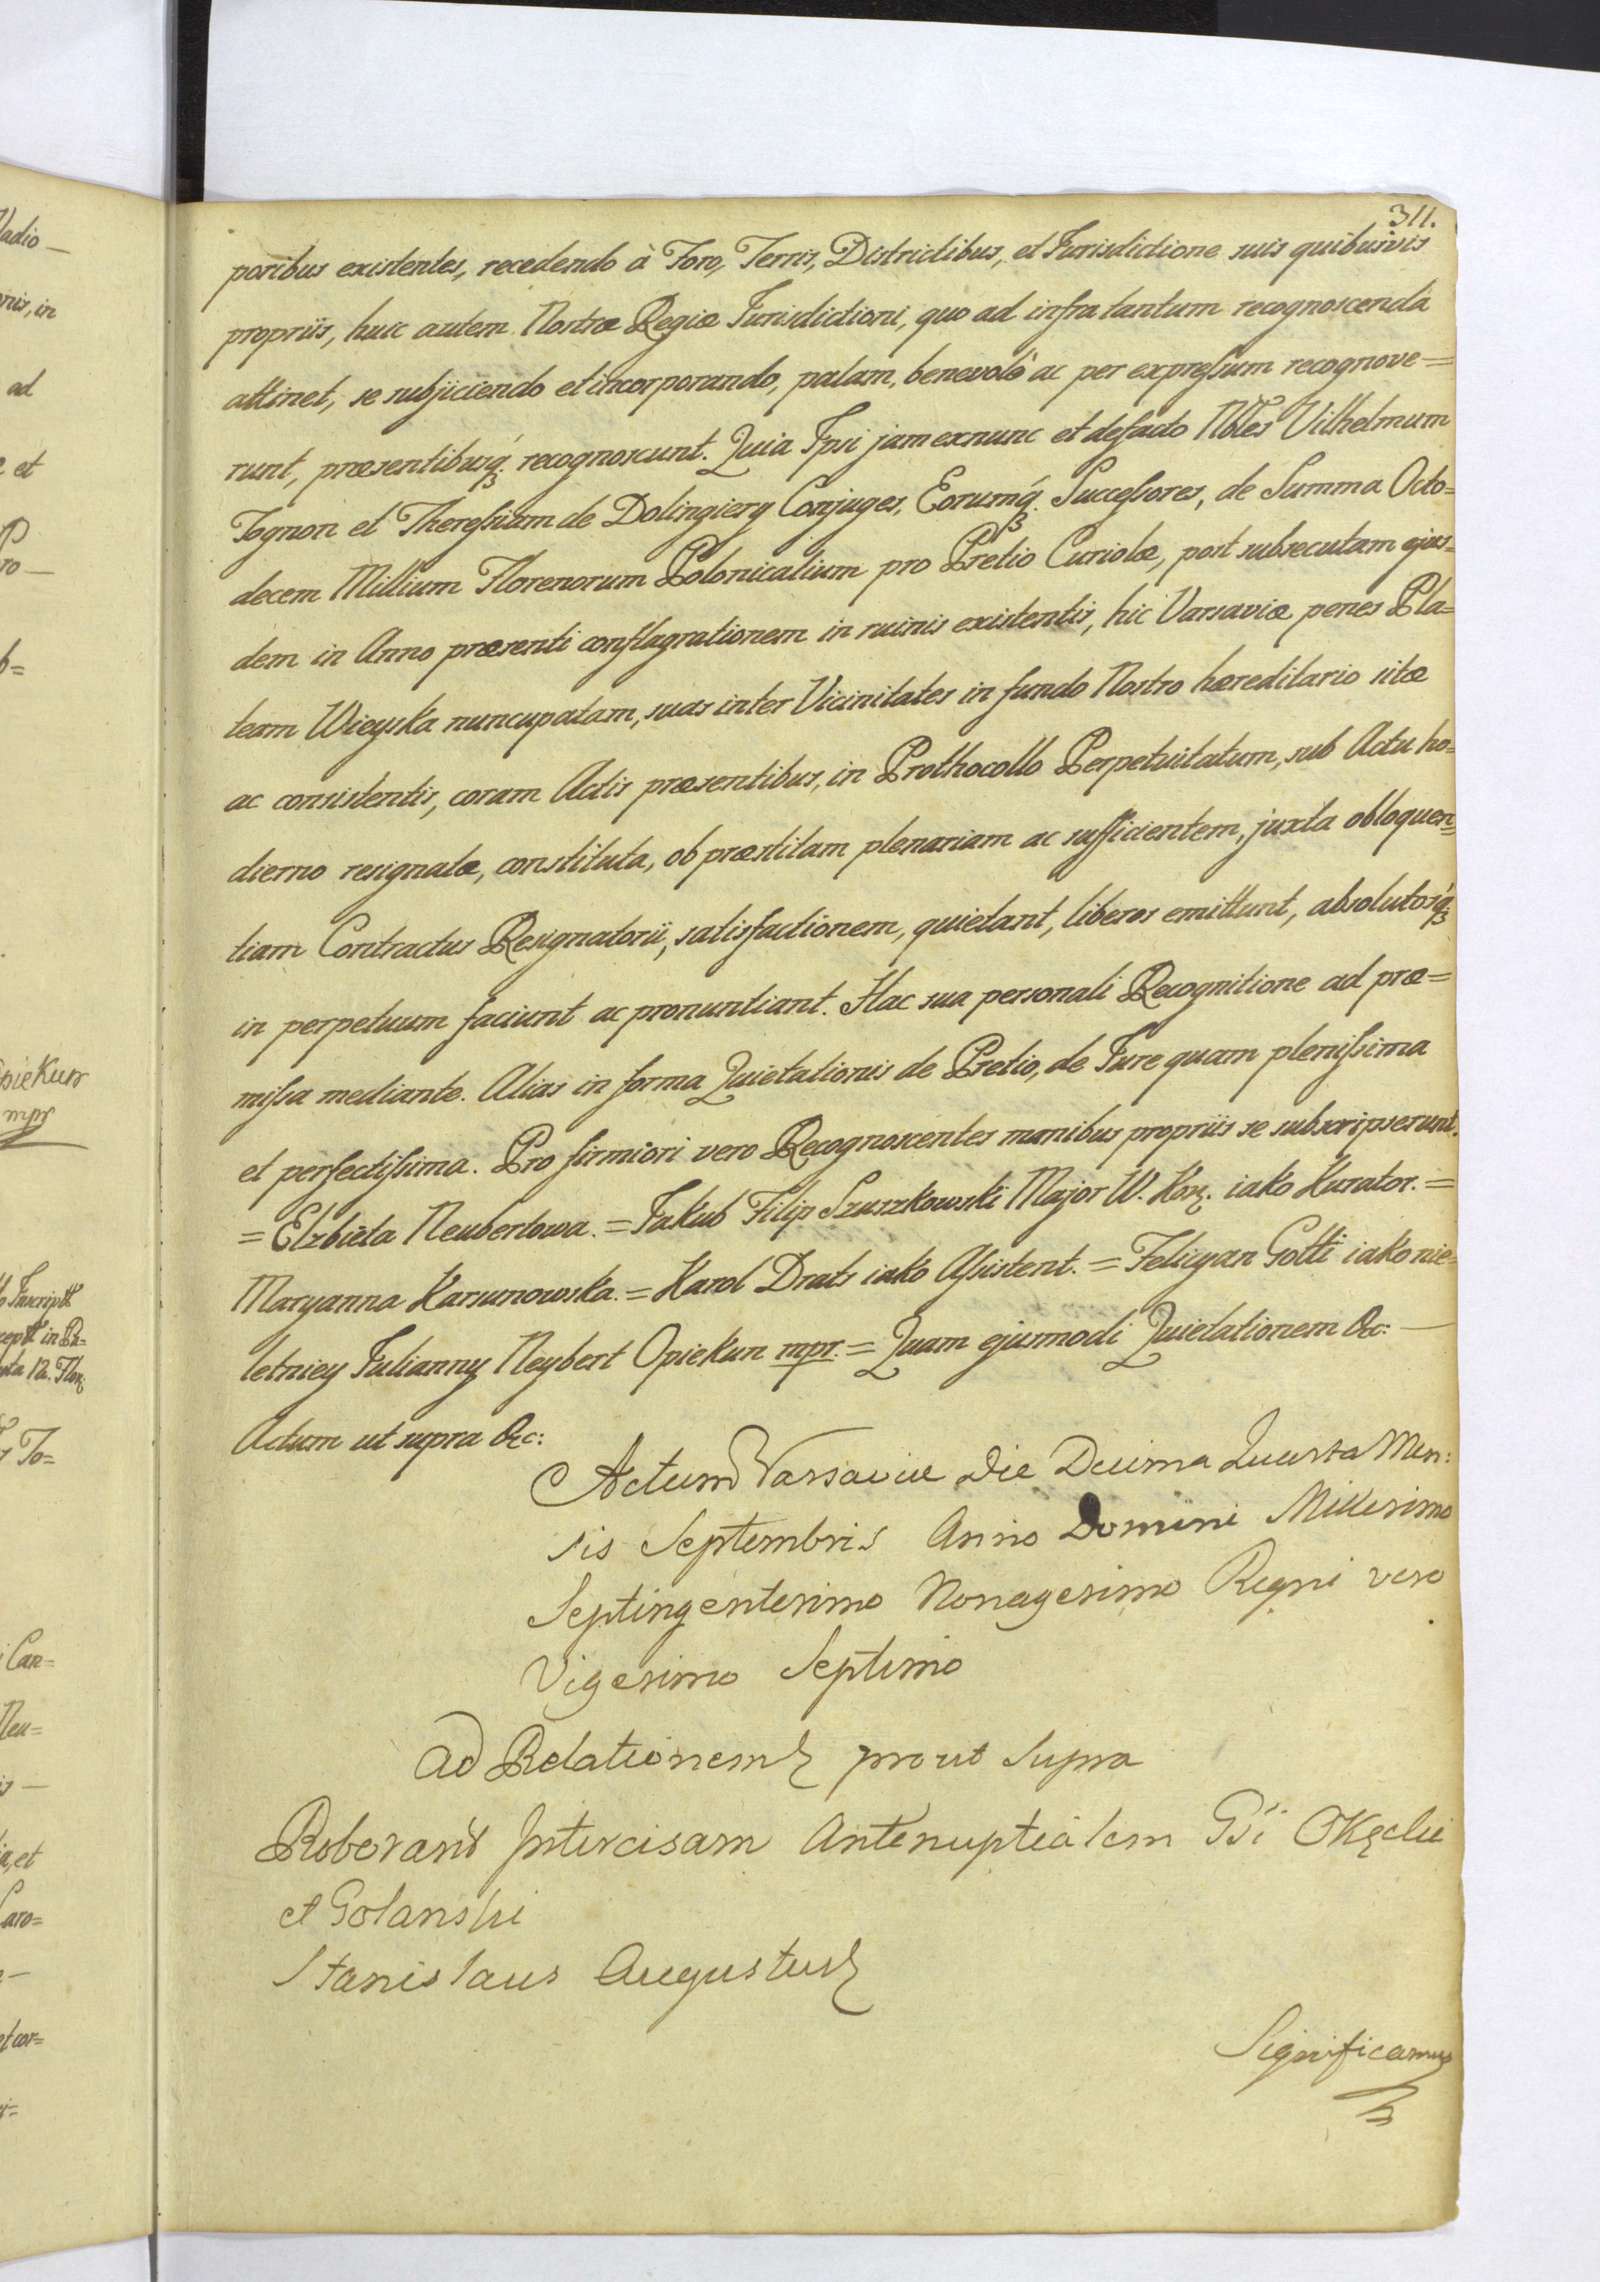 311.
poribus existentes, recedendo à Foro, Terris, Districtibus, et Jurisdictione suis quibusvis
propriis, huic autem Nostræ Regiæ Jurisdictioni, quo ad infra tantum recognoscenda
attinet, se subjiciendo et incorporando, palam, benevolè ac per expreſsum recognove=
runt, præsentibusq́ꝫ recognoscunt. Quia Ipsi jam exnunc et defacto Nbles Vilhelmum
Tognon et Thereſsiam de Dolingiery Conjuges, Eorumq́ꝫ Succeſsores, de Summa Octo=
decem Millium Florenorum Polonicalium pro Pretio Curiolæ, post subsecutam ejus=
dem in Anno præsenti conflagrationem in ruinis existentis, hic Varsaviæ penes Pla=
team Wieyska nuncupatam, suas inter Vicinitates in fundo Nostro hæreditario sitæ
ac consistentis, coram Actis præsentibus, in Prothocollo Perpetuitatum, sub Actu ho=
dierno resignatæ, constituta, ob præstitam plenariam ac sufficientem, juxta obloquen=
tiam Contractus Resignatorii, satisfactionem, quietant, liberos emittunt, absolutosq́ꝫ
in perpetuum faciunt ac pronuntiant. Hac sua personali Recognitione ad præ=
miſsa mediante. Alias in forma Quietationis de Pretio, de Jure quam pleniſsima
et perfectiſsima. Pro firmiori vero Recognoscentes manibus propriis se subscripserunt.
= Elzbieta Neubertowa. = Jakub Filip Szuszkowski Major W. Kor. iako Kurator. =
Maryanna Karsunowska. = Karol Drats iako Aſsistent. = Felicyan Gotti iako nie=
letniey Julianny Neybert Opiekun mpr. = Quam ejusmodi Quietationem &c: —
Actum ut supra &c:
Actum Varsaviæ Die Decima Quarta Men:
sis Septembris Anno Domini Millesimo
Septingentesimo Nonagesimo Regni vero
Vigesimo Septimo
Ad Relationem prout Supra
Roborant Intercisam Antenuptialem Gsi Okęcki
et Golanski
Stanislaus Augustus
Significamus